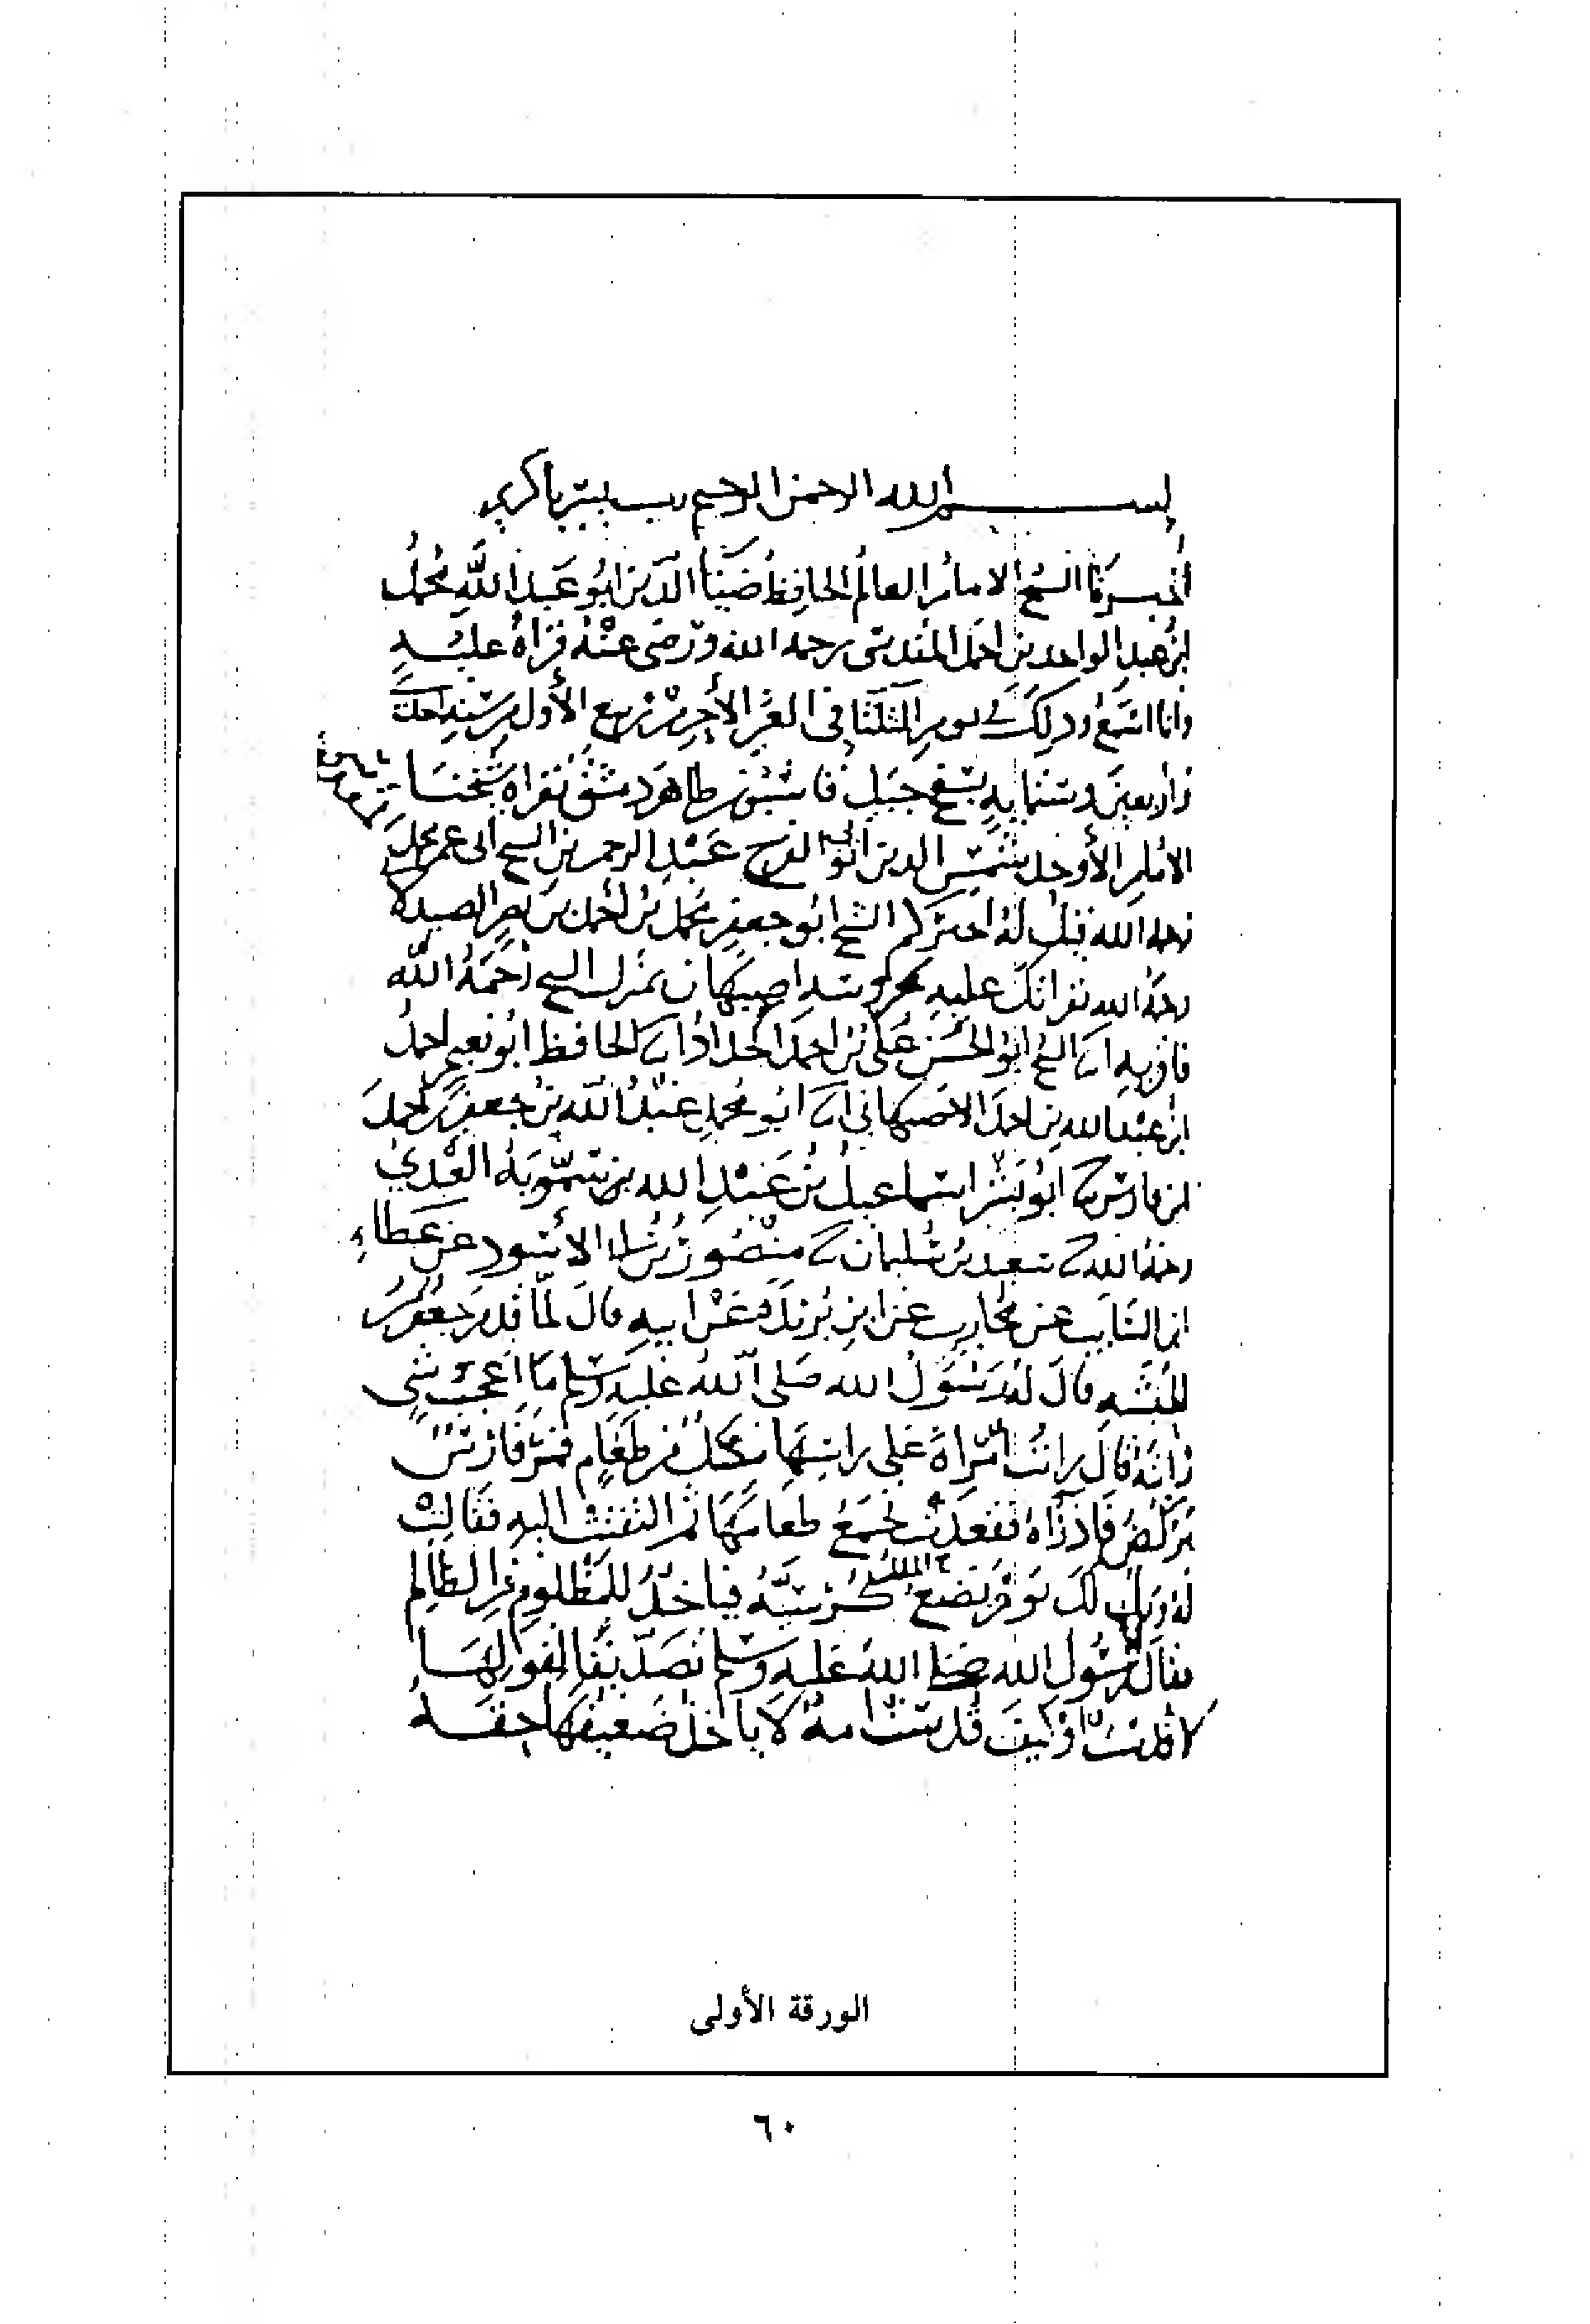 بسم الله الرحمن الرحيم رب يسر يا كريم
أخبرنا الشيخ الامام العالم الحافظ ضيا الدين ابو عبد الله محمد
ابن عبد الواحد بن احمد المقدسي رحمه الله ورضي عنه قراة عليه
وانا اسمع وذلك في يوم الثلثا في العشر الأخر من ربيع الأول من سنة احدى
واربعين وستماية بسفح جبل قاسيون ظاهر دمشق بقراة شيخنا
الامام الأوحد شمس الدين ابي الفرج عبد الرحمن بن الشيخ ابي عمر محمد
رحمه الله قيل له اخبركم الشيخ ابو جعفر محمد بن احمد بن نصر الصيدلاني
رحمه الله بقراتك عليه بمحروسة اصبهان بمنزل الشيخ رحمه الله
فاقر به ابنا الشيخ ابو الحسن علي بن احمد الحداد ابنا الحافظ ابو نعيم احمد
ابن عبد الله بن احمد الاصبهاني ابنا ابو محمد عبد الله بن جعفر بن احمد
ابن فارس ثنا ابو بشر اسماعيل بن عبد الله بن سمويه العبدي
رحمه الله ثنا سعيد بن سليمان ثنا منصور بن ابي الأسود عن عطاء
ابن السايب عن محارب عن ابن بريدة عن ابيه قال لما قدم جعفر من
الحبشة قال له رسول الله صلى الله عليه وسلم ما اعجب شي
رايته قال رايت امراة على راسها مكتل من طعام فمر فارس
يركض فاذراه فقعدت تجمع طعامها ثم التفتت اليه فقالت
له ويل لك يوم يضع الملك كرسيه فياخذ للمظلوم من الظالم
فقال رسول الله صلى الله عليه وسلم تصديقا لقولها
لا قدست او كيف قدست امة لا ياخذ ضعيفها حقه
الورقة الأولى
٦٠